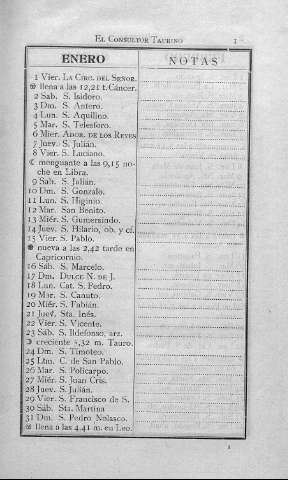 EL CONSULTOR TAURINO 1
ENERO
NOTAS
1 Vier. LA CIRC. DEL SEÑOR.
llena a las 12,21 t. Cáncer.
2 Sab. S. Isidoro.
3 Dm. S. Antero.
4 Lun. S. Aquilino.
5 Mar. S. Telesforo.
6 Mier. ADOR. DE LOS REYES
7 Juev. S. Julián.
8 Vier. S. Luciano.
☾ menguante a las 9,15 no-
che en Libra.
9 Sab. S. Julián.
10 Dm. S. Gonzalo.
11 Lun. S. Higinio
12 Mar. San Benito.
13 Miér. S. Gumersindo.
14 Juev. S. Hilario, ob. y cf.
15 Vier. S. Pablo.
nueva a las 2,42 tarde en
Capricornio.
16 Sáb. S. Marcelo.
17 Dm. DULCE N. DE J.
18 Lun. Cat. S. Pedro.
19 Mar. S. Canuto.
20 Miér. S. Fabián.
21 Juev. Sta. Inés.
22 Vier. S. Vicente.
23 Sáb. S. Ildefonso, arz.
☽ creciente 5,32 m. Tauro.
24 Dm. S. Timoteo.
25 Lun. C. de San Pablo.
26 Mar. S. Policarpo.
27 Miér. S. Juan Cris.
28 Juev. S. Julián.
29 Vier. S. Francisco de S.
30 Sáb. Sta. Martina
31 Dm. S. Pedro Nolasco.
llena a las 4.41 m. en Leo.
1